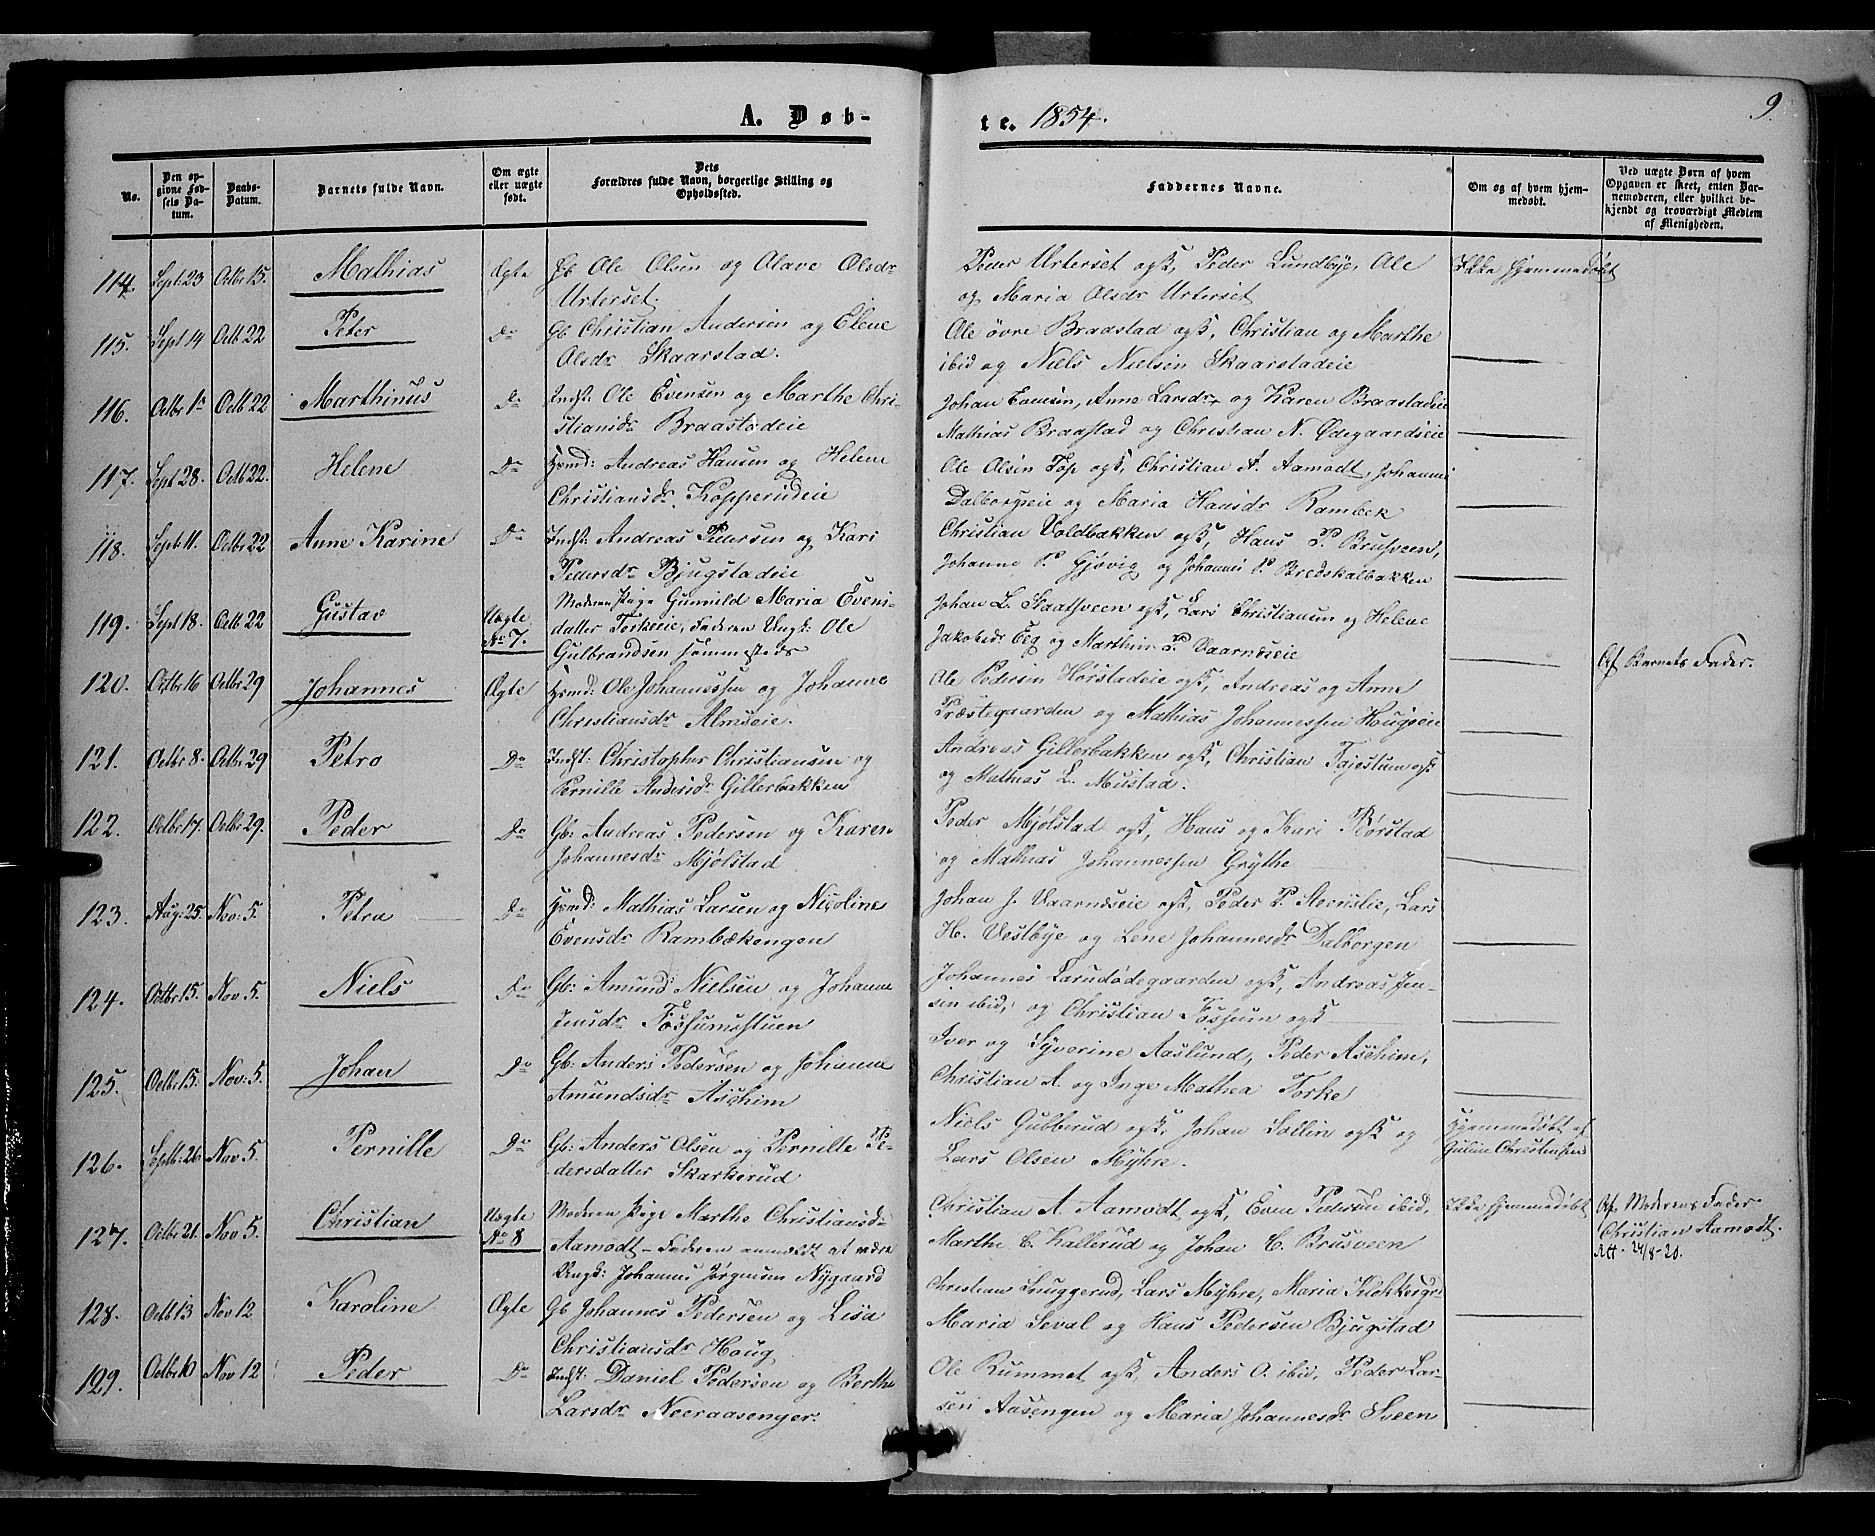 A. Døb-
te. 1854.
9.
No.
Den opgivne Fødsels Datum.
Daabs-Datum.
Barnets fulde Navn.
Om ægte eller uægte født.
Dets Forældres fulde Navn, borgerlige Stilling og Opholdssted.
Faddernes Navne.
Om og af hvem hjemmedøbt.
Ved uægte Børn af hvem Opgaven er skeet, enten Barnemoderen, eller hvilket bekjendt og troværdigt Medlem af Menigheden.
114. Sept: 23 Octbr 15. Mathias Ægte Gb Ole Olsen og Olave Olsdr
Urterset.
Peder Urterset ogs, Peder Lundbye, Ole
og Maria Olsdr Urterset
Ikke hjemmedøbt
115. Sept 14 Octb 22 Peter Do Gb Christian Andersen og Elene
Olsdr Skaarstad.
Ole øvre Braastad ogs, Christian og Marthe
ibid og Niels Nielsen Skaarstadeie
116. Octbr 1 Octb 22 Marthinus Do Indst: Ole Evensen og Marthe Chri-
stiansdr Braastadeie
Johan Evensen, Anne Larsdr og Karen Braastadeie
Mathias Braastad og Christian N. Ødegaardseie
117. Sept 28. Octb 22. Helene Do Husmd: Andreas Hansen og Helene
Christiansdr Kopperudeie
Ole Olsen Top ogs, Christian A. Aamodt, Johannes
Dalborgseie og Maria Hansdr Rambek
118. Sept: 11. Octbr 22 Anne Karine Do Indst: Andreas Pedersen og Kari
Pedersdr Bjugstadeie
Christian Voldbakken ogs, Hans P. Brusveen,
Johanne P. Gjøvig og Johannes P. Bredskalbakken
119. Sept 18. Octb 22 Gustav Uægte
No 7.
Moderen Pige Gunnild Maria Evens-
datter Torkeeie, Faderen Ungk: Ole
Gulbrandsen sammesteds
Johan L. Staalsveen ogs, Lars Christiansen og Helene
Jakobsdr Eeg og Marthin P. Vaarnæseie
Af Barnets Fader.
120. Octbr 16 Octbr 29 Johannes Ægte Husmd: Ole Johannessen og Johanne
Christiansdr Almseie.
Ole Pedersen Hørstadeie ogs, Andreas og Anne
Præstegaarden og Mathias Johannessen Hougseie
121. Octbr 8. Octbr 29 Petra Do Indst: Christopher Christiansen og
Pernille Andersdr Gillerbakken
Andreas Gillerbakken ogs, Christian Fajestuen ogs
og Mathias L. Mustad.
122. Octbr 17. Octbr 29. Peder Do Gb: Andreas Pedersen og Karen
Johannesdr Mjølstad
Peder Mjølstad ogs, Hans og Kari Rørstad
og Mathias Johannessen Grythe
123. Aug: 25. Nov: 5. Petra Do Husmd: Mathias Larsen og Nicoline
Evensdr Rambækengen
Johan J. Vaarnæseie ogs, Peder P. Steenslie, Lars
H. Vestbye og Lene Johannesdr Dalborgen
124. Octbr 15. Nov 5. Niels Do Gb: Amund Nielsen og Johanne
Jensdr Fossumsstuen
Johannes Larsødegaarden ogs, Andreas Jen-
sen ibid, og Christian Fossum ogs
125. Octbr 15. Nov: 5. Johan Do Gb: Anders Pedersen og Johanne
Amundsdr Aschim
Iver og Syverine Aaslund, Peder Aschim,
Christian A. og Inge Mathea Torke
126. Septb: 26 Nov 5. Pernille Do Gb: Anders Olsen og Pernille Pe-
dersdatter Skarkerud
Niels Gubberud ogs, Johan Sollin ogs og
Lars Olsen Myhre.
Hjemmedøbt af
Gulian Christensen
127. Octbr 21. Nov 5. Christian Uægte
No 8
Moderen Pige Marthe Christiansdr
Aamodt - Faderen anmeldt at være
Ungk: Johannes Jørgensen Nygaard
Christian A. Aamodt ogs, Even Pedersen ibid,
Marthe C. Kallerud og Johan C. Brusveen
Ikke hjemmedøbt
Af Moderens Fader
Christian Aamodt.
Att. 24/8-20.
128. Octb 13 Nov 12 Karoline Ægte Gb Johannes Pedersen og Lisa
Christiansdr Houg
Christian Snuggerud, Lars Myhre, Maria Klokkergr
Maria Seval og Hans Pedersen Bjugstad
129. Octbr 10 Nov 12 Peder Do Indst: Daniel Pedersen og Berthe
Larsdr Neeraasenger.
Ole Rummet ogs, Anders O. ibid, Peder Lar-
sen Aasengen og Maria Johannesdr Sveen